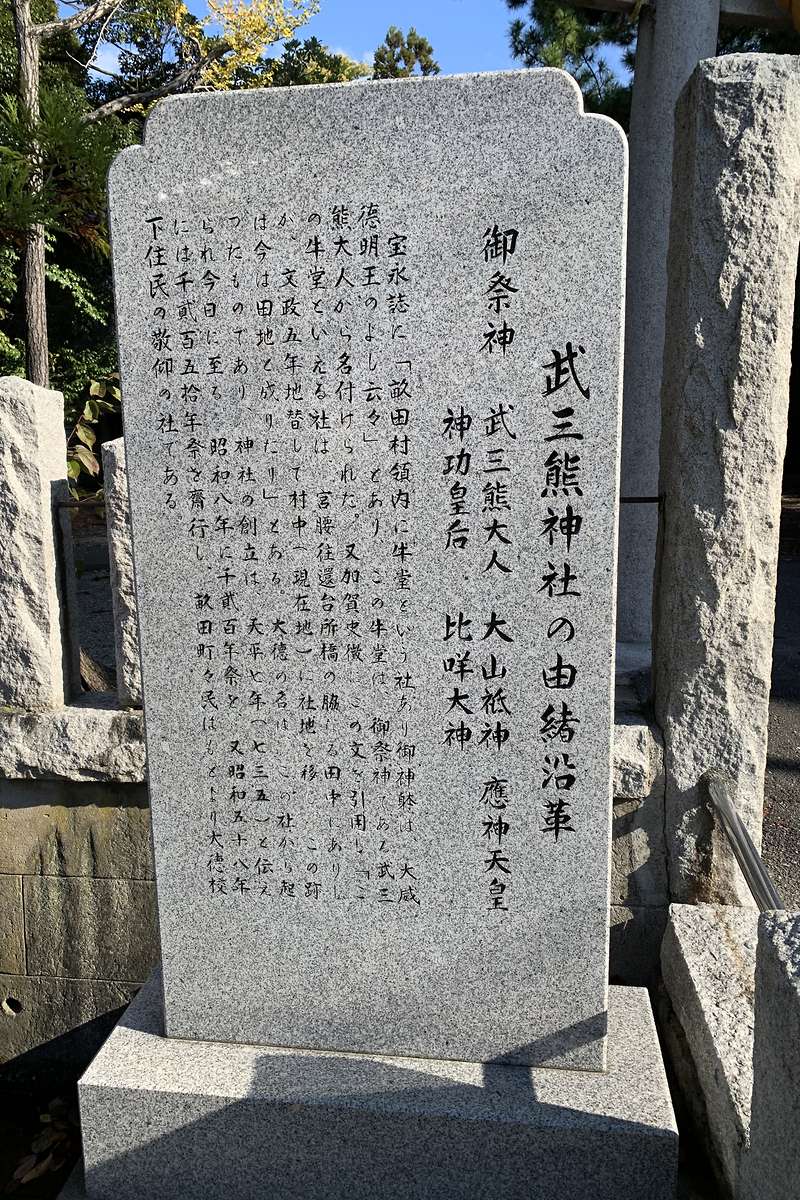 武三熊神社の由緒沿革
御祭神 武三熊大人 大山祇神 應神天皇
神功皇后 比咩大神
宝永誌に「畝田村領内に牛堂という社あり御神躰は、大威
德明王のよし云々」とあり、この牛堂は、御祭神である武三
熊大人から名付けられた。又加賀史徴にこの文を引用し「こ
の牛堂といえる社は、宮腰往還台所橋の脇なる田中にありし
が、文政五年地替して村中(現在地)に社地を移し、この跡
は今は田地と成りたり」とある。大德の名は、この社から起
ったものであり、神社の創立は、天平七年(七三五)と伝え
られ今日に至る。昭和八年に千貳百年祭を、又昭和五十八年
には千貳百五拾年祭を齋行し、畝田町々民はもとより大德校
下住民の敬仰の社である。